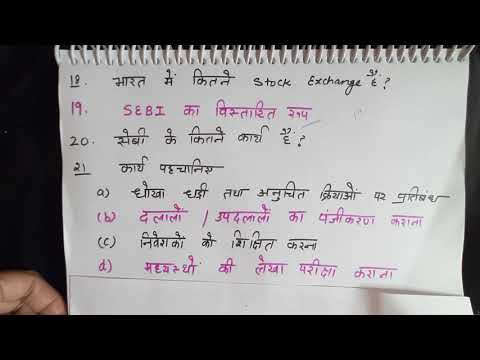 18. भारत में कितने Stock Exchange हैं ?
19. SEBI का विस्तारित रूप
20. सेबी के कितने कार्य हैं ?
21 कार्य पहचानिए
a) धोखा धड़ी तथा अनुचित क्रियाओं पर प्रतिबंध
(b) दलालों / उपदलालों का पंजीकरण कराना
(c) निवेशकों को शिक्षित करना
d) मध्यस्थों की लेखा परीक्षा कराना